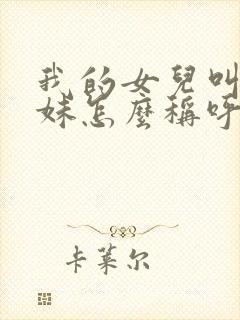 我的女兒叫
妹怎麼稱呼
卡萊尔